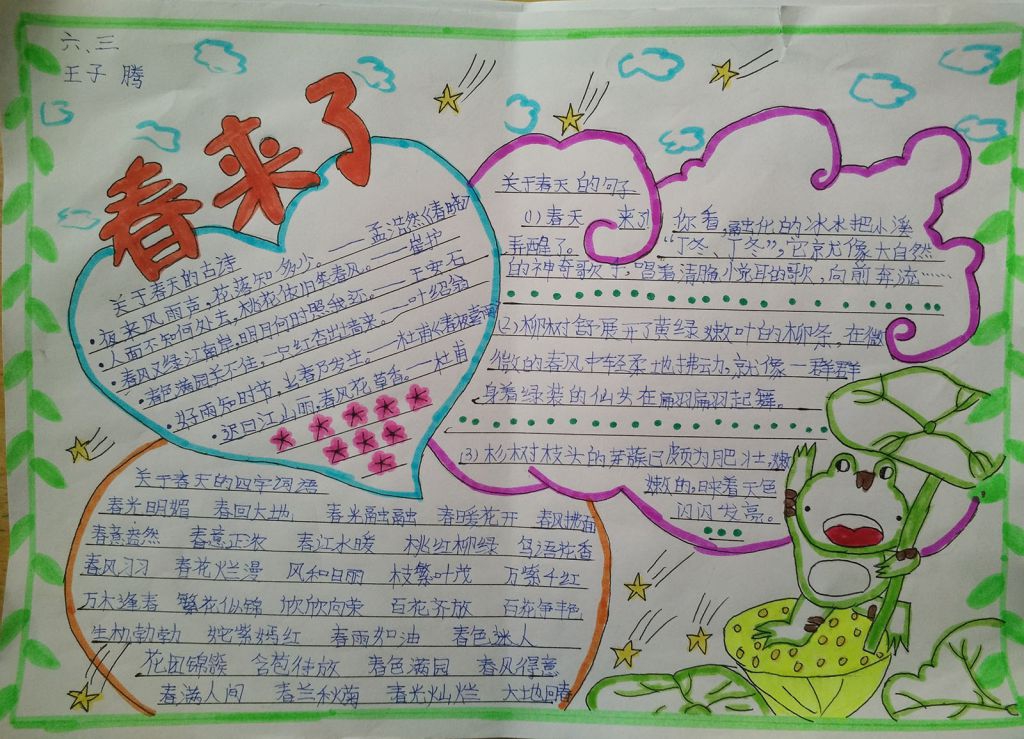 六、三
王子腾
春来了
关于春天的古诗
·夜来风雨声，花落知多少。——孟浩然《春晓》
·人面不知何处去，桃花依旧笑春风。——崔护
·春风又绿江南岸，明月何时照我还。——王安石
·春色满园关不住，一只红杏出墙来。——叶绍翁
·好雨知时节，当春乃发生。——杜甫《春夜喜雨》
·迟日江山丽，春风花草香。——杜甫
关于春天的句子
(1)春天 来了 你看，融化的冰水把小溪
弄醒了。"丁冬、丁冬"，它就像大自然
的神奇歌手，唱着清脆小悦耳的歌，向前奔流……
(2)柳树舒展开了黄绿嫩叶的柳条，在微
微的春风中轻柔地拂动，就像一群群
身着绿装的仙头在扁羽扁羽起舞。
(3)杉树枝头的芽簇已颇为肥壮，嫩
嫩的，映着天色
闪闪发亮。
关于春天的四字词语
春光明媚 春回大地 春光融融 春暖花开 春风拂面
春意盎然 春意正浓 春江水暖 桃红柳绿 鸟语花香
春风习习 春花烂漫 风和日丽 枝繁叶茂 万紫千红
万木逢春 繁花似锦 欣欣向荣 百花齐放 百花争艳
生机勃勃 姹紫嫣红 春雨如油 春色迷人
花团锦簇 含苞待放 春色满园 春风得意
春满人间 春兰秋菊 春光灿烂 大地回春